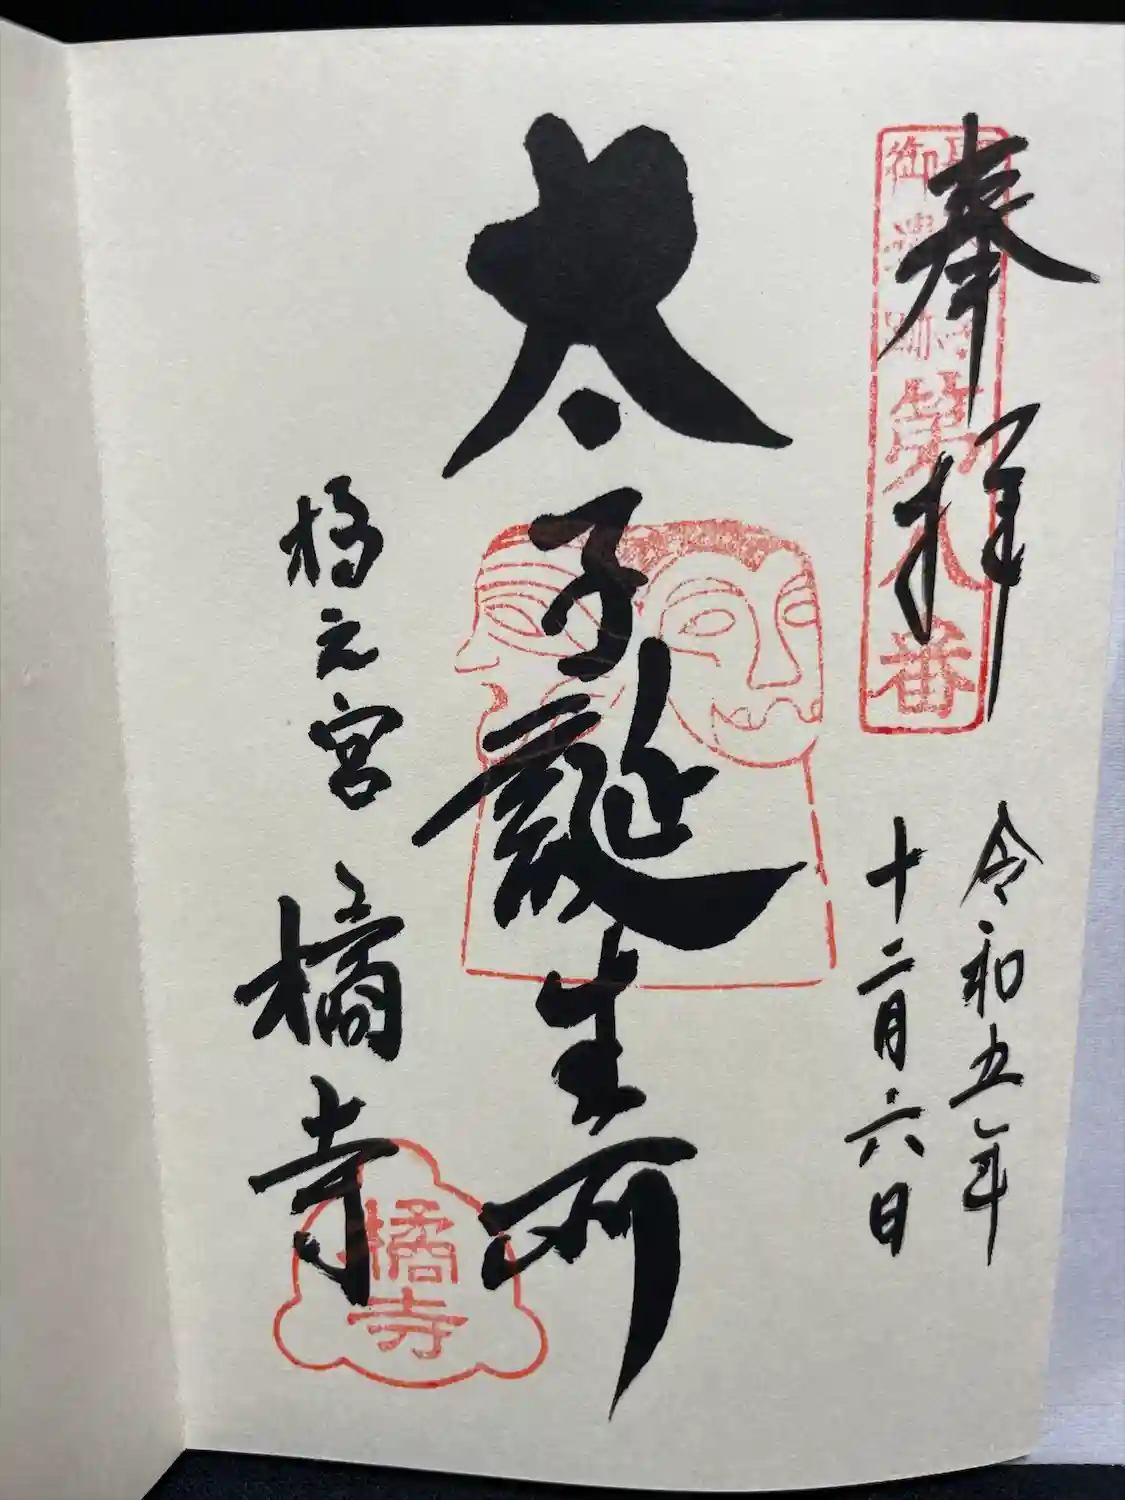 奉拝
御遺跡
第八番
令和五年
十二月六日
太子誕生所
橘之宮
橘寺
橘寺